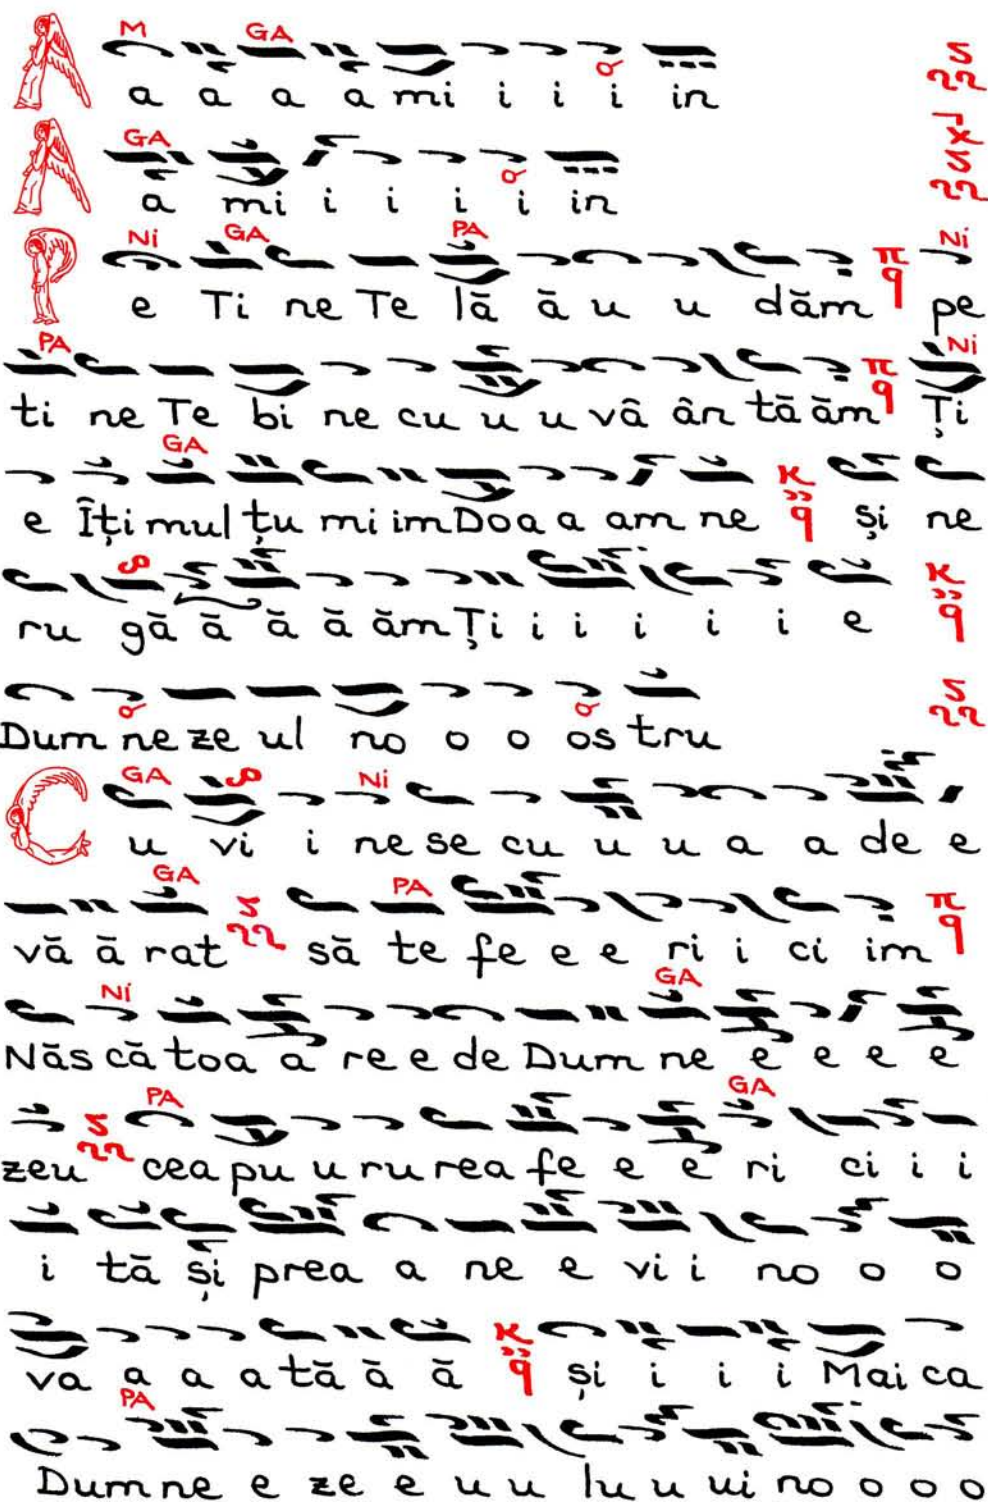 M GA
A a a a a mi i i i in
GA
A a mi i i i i in
Ni GA PA Ni
P e Ti ne Te lă ă u u dăm π q pe
PA Ni
ti ne Te bi ne cu u u u vâ ân tă ăm π q Ți
GA
e Îți mul țu mi im Doa a am ne K q și ne
ru gă ă ă ă ăm Ți i i i i i e K q
Dum ne ze ul no o o os tru
GA Ni
C u vi i ne se cu u u u a a de e
GA PA
vă ă rat să te fe e e ri i ci im π q
Ni GA
Năs că toa a re e de Dum ne e e e e
PA GA
zeu cea pu u ru rea fe e e ri ci i i
i tă și prea a ne e vi i no o o
va a a a tă ă ă K q și i i i Mai ca
PA
Dum ne e ze e u u lu u ui no o o o